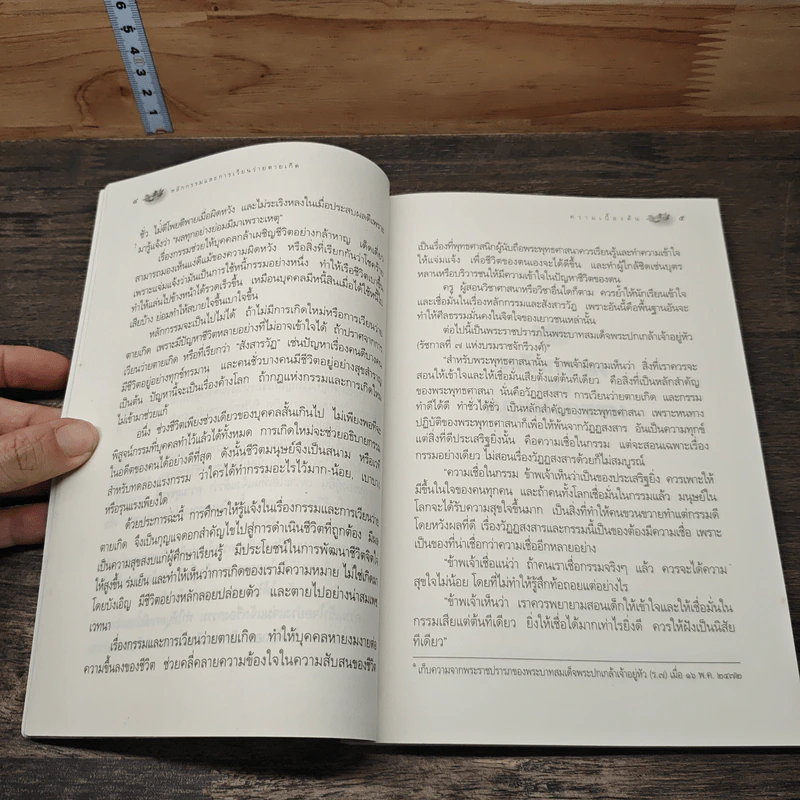 6
5
4
3
2
1
๔ หลักกรรมและการเวียนว่ายตายเกิด
ชั่ว ไม่ตีโพยตีพายเมื่อผิดหวัง และไม่ระเริงหลงในเมื่อประสบผลดีเพราะ
มารู้แจ้งว่า "ผลทุกอย่างย่อมมีมาเพราะเหตุ"
เรื่องกรรมช่วยให้บุคคลกล้าเผชิญชีวิตอย่างกล้าหาญ เด็ดเดี่ยว
สามารถมองเห็นแง่ดีแม้ของความผิดหวัง หรือสิ่งที่เรียกกันว่าโชคร้าย
เพราะแจ้งว่ามันเป็นการใช้หนี้กรรมอย่างหนึ่ง ทำให้เรือชีวิตเบาขึ้น
ทำให้แล่นไปข้างหน้าได้รวดเร็วขึ้น เหมือนบุคคลมีหนี้สินเมื่อได้ใช้หนี้
เสียบ้าง ย่อมทำให้สบายใจขึ้นเบาใจขึ้น
หลักกรรมจะเป็นไปไม่ได้ ถ้าไม่มีการเกิดใหม่หรือการเวียนว่าย
ตายเกิด เพราะมีปัญหาชีวิตหลายอย่างที่ไม่อาจเข้าใจได้ ถ้าปราศจากการ
เวียนว่ายตายเกิด หรือที่เรียกว่า "สังสารวัฏ" เช่นปัญหาเรื่องคนดีบางคน
มีชีวิตอยู่อย่างทุกข์ทรมาน และคนชั่วบางคนมีชีวิตอยู่อย่างสุขสำราญ
เป็นต้น ปัญหานี้จะเป็นเรื่องค้างโลก ถ้ากฎแห่งกรรมและการเกิดใหม่
ไม่เข้ามาช่วยแก้
อนึ่ง ช่วงชีวิตเพียงช่วงเดียวของบุคคลสั้นเกินไป ไม่เพียงพอที่จะ
พิสูจน์กรรมที่บุคคลทำไว้แล้วได้ทั้งหมด การเกิดใหม่จะช่วยอธิบายกรรม
ในอดีตของคนได้อย่างดีที่สุด ดังนั้นชีวิตมนุษย์จึงเป็นสนาม หรือเวที
สำหรับทดลองแรงกรรม ว่าใครได้ทำกรรมอะไรไว้มาก-น้อย, เบาบาง
หรือรุนแรงเพียงใด
ด้วยประการฉะนี้ การศึกษาให้รู้แจ้งในเรื่องกรรมและการเวียนว่าย
ตายเกิด จึงเป็นกุญแจดอกสำคัญไขไปสู่การดำเนินชีวิตที่ถูกต้อง มีผล
เป็นความสุขสงบแก่ผู้ศึกษาเรียนรู้ มีประโยชน์ในการพัฒนาชีวิตจิตใจ
ให้สูงขึ้น ร่มเย็น และทำให้เห็นว่าการเกิดของเรามีความหมาย ไม่ใช่เกิดมา
โดยบังเอิญ มีชีวิตอย่างหลักลอยปล่อยตัว และตายไปอย่างน่าสมเพช
เวทนา
เรื่องกรรมและการเวียนว่ายตายเกิด ทำให้บุคคลหายงมงายต่อ
ความขึ้นลงของชีวิต ช่วยคลี่คลายความข้องใจในความสับสนของชีวิต
ความเบื้องต้น ๕
เป็นเรื่องที่พุทธศาสนิกผู้นับถือพระพุทธศาสนาควรเรียนรู้และทำความเข้าใจ
ให้แจ่มแจ้ง เพื่อชีวิตของตนเองจะได้ดีขึ้น และทำผู้ใกล้ชิดเช่นบุตร
หลานหรือบริวารชนให้มีความเข้าใจในปัญหาชีวิตของตน
ครู ผู้สอนวิชาศาสนาหรือวิชาอื่นใดก็ตาม ควรย้ำให้นักเรียนเข้าใจ
และเชื่อมั่นในเรื่องหลักกรรมและสังสารวัฏ เพราะอันนี้คือพื้นฐานอันจะ
ทำให้ศีลธรรมมั่นคงในจิตใจของเยาวชนเหล่านั้น
ต่อไปนี้เป็นพระราชปรารภในพระบาทสมเด็จพระปกเกล้าเจ้าอยู่หัว
(รัชกาลที่ ๗ แห่งบรมราชจักรีวงศ์)*
"สำหรับพระพุทธศาสนานั้น ข้าพเจ้ามีความเห็นว่า สิ่งที่เราควรจะ
สอนให้เข้าใจและให้เชื่อมั่นเสียตั้งแต่ต้นทีเดียว คือสิ่งที่เป็นหลักสำคัญ
ของพระพุทธศาสนา นั่นคือวัฏฏสงสาร การเวียนว่ายตายเกิด และกรรม
ทำดีได้ดี ทำชั่วได้ชั่ว เป็นหลักสำคัญของพระพุทธศาสนา เพราะหนทาง
ปฏิบัติของพระพุทธศาสนาก็เพื่อให้พ้นจากวัฏฏสงสาร อันเป็นความทุกข์
แต่สิ่งที่ดีประเสริฐยิ่งนั้น คือความเชื่อในกรรม แต่จะสอนเฉพาะเรื่อง
กรรมอย่างเดียว ไม่สอนเรื่องวัฏฏสงสารด้วยก็ไม่สมบูรณ์
"ความเชื่อในกรรม ข้าพเจ้าเห็นว่าเป็นของประเสริฐยิ่ง ควรเพาะให้
มีขึ้นในใจของคนทุกคน และถ้าคนทั้งโลกเชื่อมั่นในกรรมแล้ว มนุษย์ใน
โลกจะได้รับความสุขใจขึ้นมาก เป็นสิ่งที่ทำให้คนขวนขวายทำแต่กรรมดี
โดยหวังผลที่ดี เรื่องวัฏฏสงสารและกรรมนี้เป็นของต้องมีความเชื่อ เพราะ
เป็นของที่น่าเชื่อกว่าความเชื่ออีกหลายอย่าง
"ข้าพเจ้าเชื่อแน่ว่า ถ้าคนเราเชื่อกรรมจริงๆ แล้ว ควรจะได้ความ
สุขใจไม่น้อย โดยที่ไม่ทำให้รู้สึกท้อถอยแต่อย่างไร
"ข้าพเจ้าเห็นว่า เราควรพยายามสอนเด็กให้เข้าใจและให้เชื่อมั่นใน
กรรมเสียแต่ต้นทีเดียว ยิ่งให้เชื่อได้มากเท่าไรยิ่งดี ควรให้ฝังเป็นนิสัย
ทีเดียว"
* เก็บความจากพระราชปรารภของพระบาทสมเด็จพระปกเกล้าเจ้าอยู่หัว (ร.๗) เมื่อ ๑๖ พ.ค. ๒๔๗๒